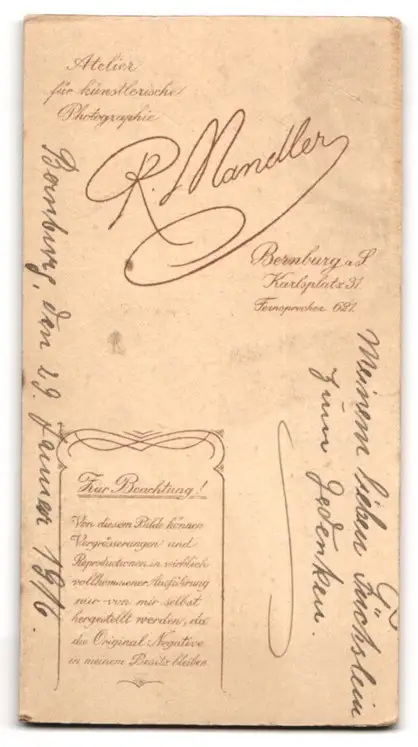 Atelier
für künstlerische
Photographie
R. Mandler
Bernburg a S
Karlsplatz 31.
Fernsprecher 621.
Bernburg, den 29. Januar 1916.
Meinem lieben Füchslein
zum Gedenken.
Zur Beachtung!
Von diesem Bilde können
Vergrösserungen und
Reproductionen in wirklich
vollkommener Ausführung
nur von mir selbst
hergestellt werden, da
die Original-Negative
in meinem Besitz bleiben